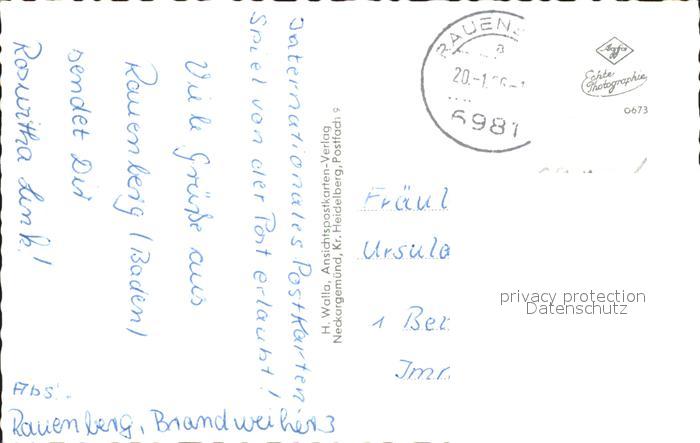 Internationales Postkarten
Spiel von der Post erlaubt!
Viele Grüße aus
Rauenberg (Baden)
sendet Dir
Roswitha Link!
Abs.:
Rauenberg, Brandweiher 3
H. Walla, Ansichtspostkarten-Verlag
Neckargemünd, Kr. Heidelberg, Postfach 9
RAUEN
a
20.-1.
6981
Agfa
Echte
Photographie
0673
Fräul
Ursula
1 Ber
privacy protection
Datenschutz